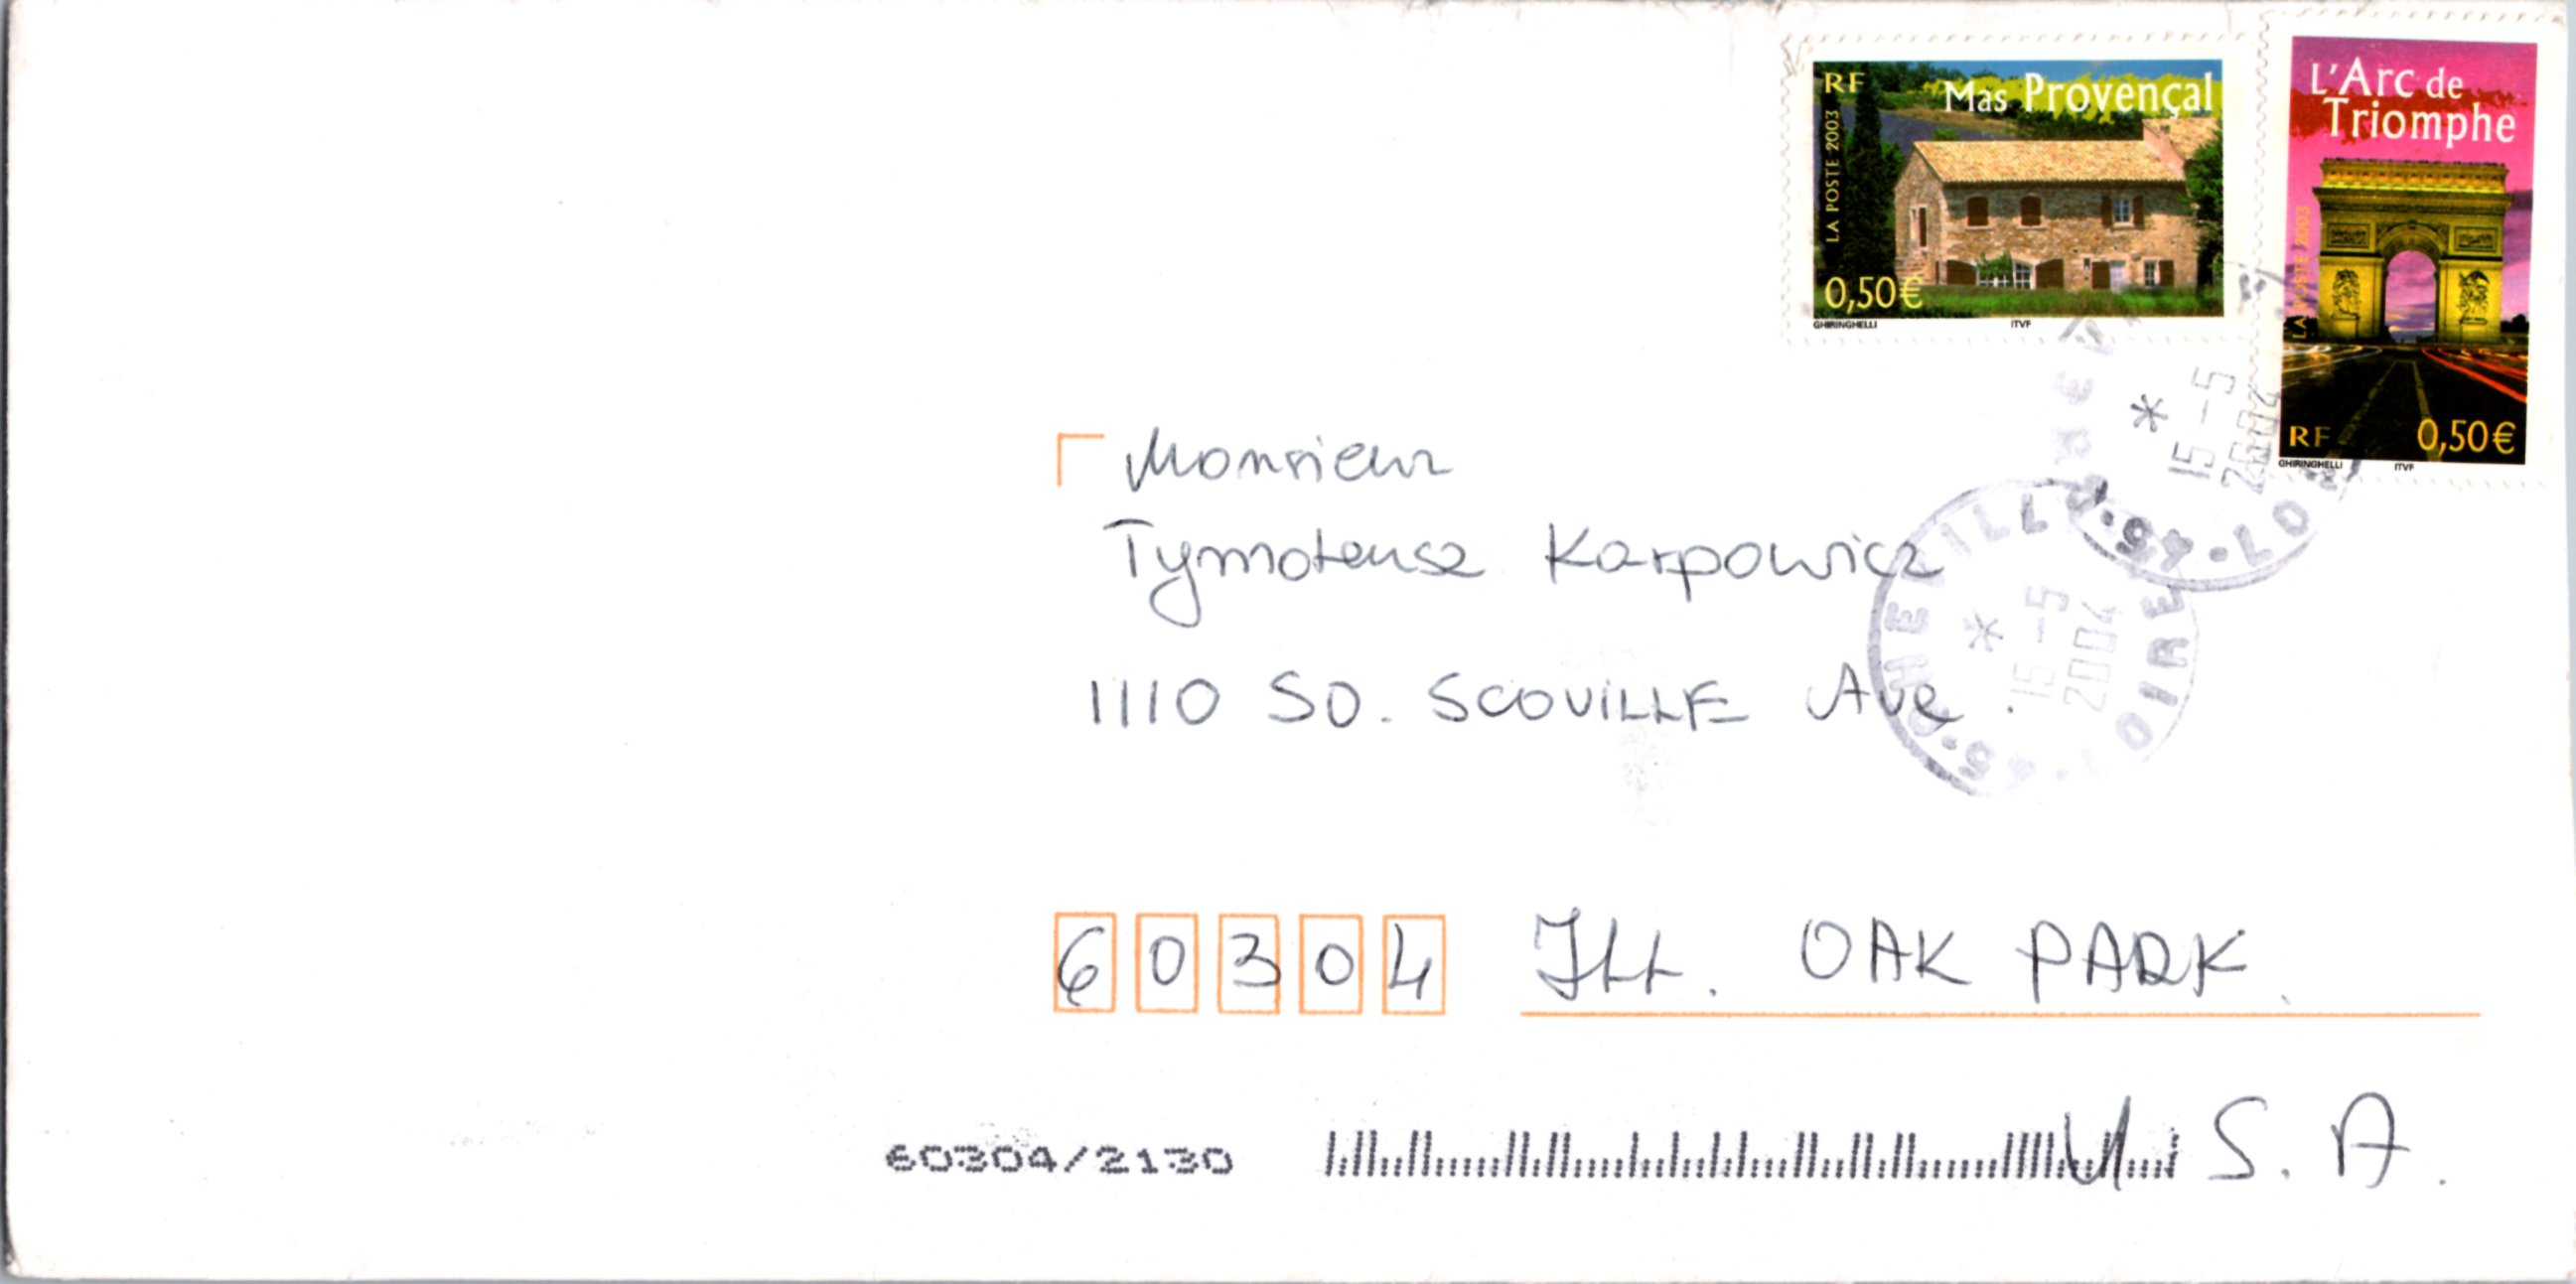 RF
Mas Provençal
LA POSTE 2003
0,50€
GHIRINGHELLI
ITVF
L'Arc de
Triomphe
LA POSTE 2003
RF
0,50€
GHIRINGHELLI
ITVF
15-5
2004
15-5
2004
LOIRET
Monsieur
Tymoteusz Karpowicz
1110 SO. SCOVILLE Ave.
60304 ILL. OAK PARK.
60304/2130
U.S.A.